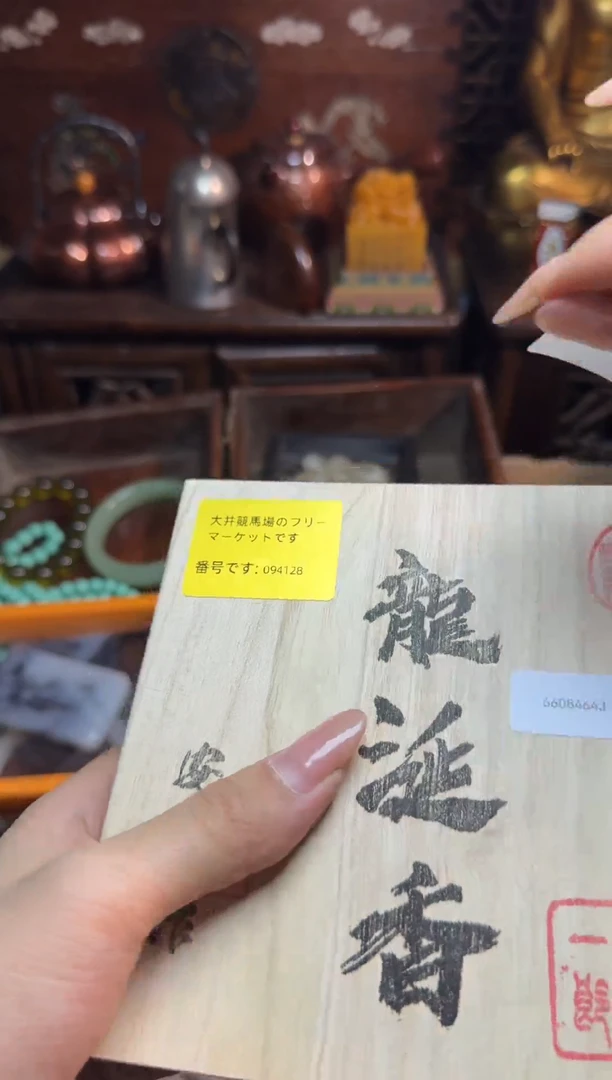 大井競馬場のフリー
マーケットです
番号です: 094128
龍涎香
安
6608464J
一郎